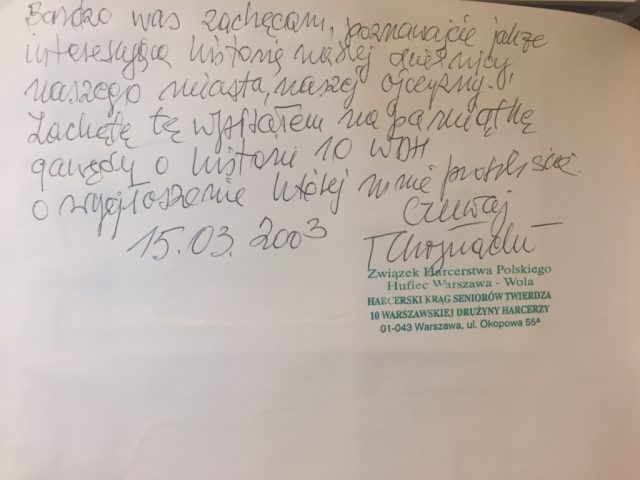 Bardzo was zachęcam, poznawajcie jakże
interesującą historię naszej dzielnicy
naszego miasta, naszej ojczyzny.
Zachętę tę wpisałem na pamiątkę
gawędy o historii 10 WDH
o wygłoszenie której mnie prosiliście.
Czuwaj
15.03.2003
Związek Harcerstwa Polskiego
Hufiec Warszawa - Wola
HARCERSKI KRĄG SENIORÓW TWIERDZA
10 WARSZAWSKIEJ DRUŻYNY HARCERZY
01-043 Warszawa, ul. Okopowa 55A